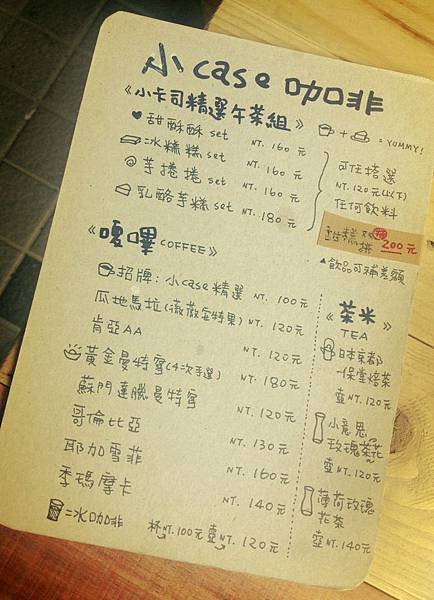 小case咖啡
《小卡司精選午茶組》
♥甜酥酥 set NT. 160 元
=冰糕糕 set NT. 160 元
芋捲捲 set NT. 160 元
乳酪芋糕 set NT. 180 元
+ = YUMMY!
可任搭選
NT. 120元(以下)
任何飲料
拼 200元
▲飲品可補差額
《嗄嗶》COFFEE
招牌:小case精選 NT. 100元
瓜地馬拉(薇薇安特果) NT. 120元
肯亞AA NT. 120元
黃金曼特寧(4次手選) NT. 180元
蘇門達臘曼特寧 NT. 120元
哥倫比亞 NT. 130元
耶加雪菲 NT. 160元
季瑪摩卡 NT. 140元
=冰咖啡 杯NT. 100元 壺NT. 120元
《茶米》
TEA
日本京都
一保堂焙茶
壺NT. 120元
小意思
玫瑰茶花
壺NT. 120元
薄荷玫瑰
花茶
壺NT. 140元